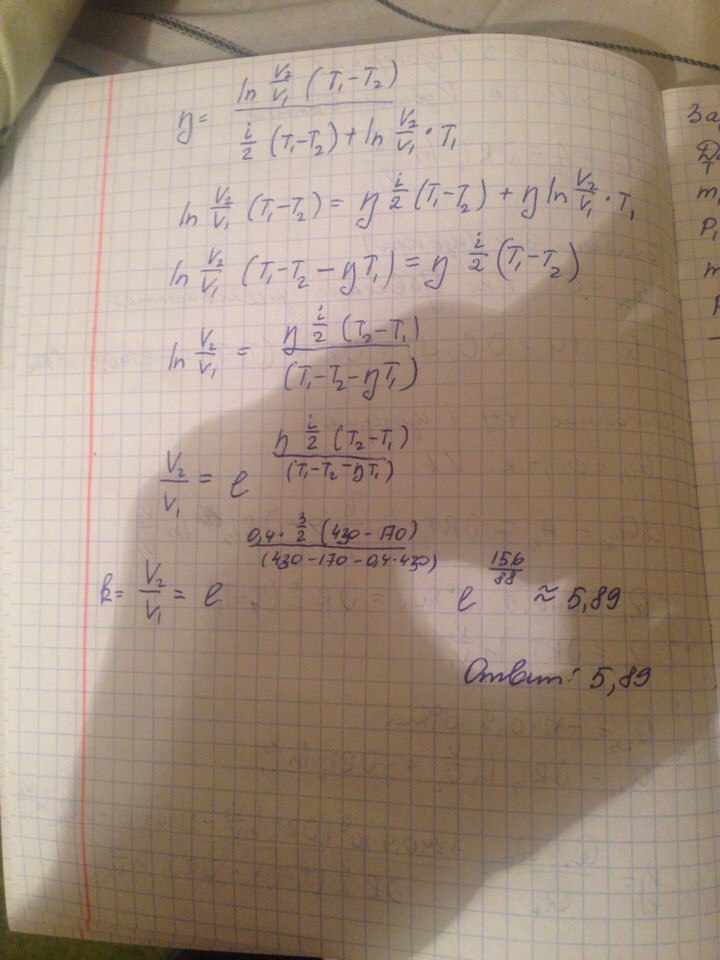 η = ln V₂/V₁ (T₁-T₂) / (i/2 (T₁-T₂) + ln V₂/V₁ · T₁)
ln V₂/V₁ (T₁-T₂) = η i/2 (T₁-T₂) + η ln V₂/V₁ · T₁
ln V₂/V₁ (T₁-T₂-ηT₁) = η i/2 (T₁-T₂)
ln V₂/V₁ = η i/2 (T₂-T₁) / (T₁-T₂-ηT₁)
V₂/V₁ = e^(η i/2 (T₂-T₁) / (T₁-T₂-ηT₁))
k = V₂/V₁ = e^(0,4 · 3/2 (430-170) / (430-170-0,4·430)) e^(156/88) ≈ 5,89
Ответ: 5,89
За
m₁
P₁
m